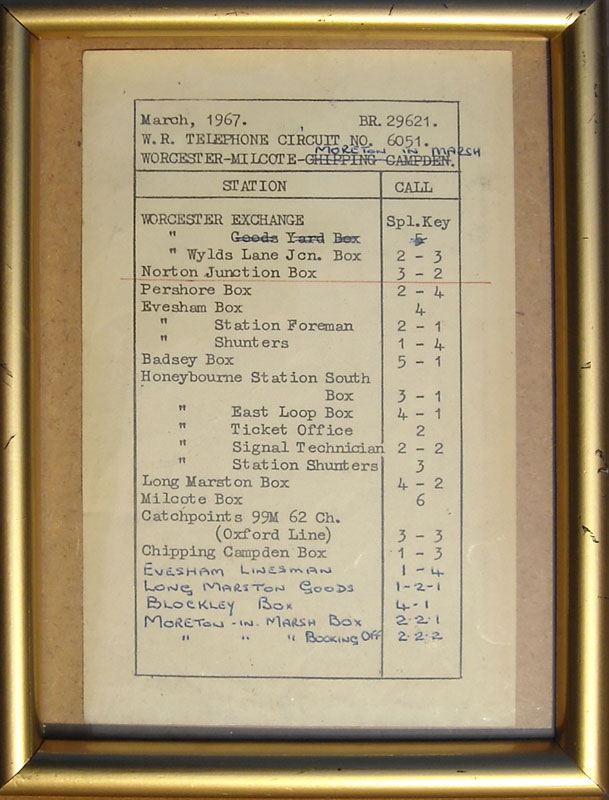 March, 1967. BR.29621.
W.R. TELEPHONE CIRCUIT NO. 6051.
MORETON IN MARSH
WORCESTER-MILCOTE-CHIPPING CAMPDEN.
STATION CALL
WORCESTER EXCHANGE Spl.Key
" Goods Yard Box 5
" Wylds Lane Jcn. Box 2 - 3
Norton Junction Box 3 - 2
Pershore Box 2 - 4
Evesham Box 4
" Station Foreman 2 - 1
" Shunters 1 - 4
Badsey Box 5 - 1
Honeybourne Station South
Box 3 - 1
" East Loop Box 4 - 1
" Ticket Office 2
" Signal Technician 2 - 2
" Station Shunters 3
Long Marston Box 4 - 2
Milcote Box 6
Catchpoints 99M 62 Ch.
(Oxford Line) 3 - 3
Chipping Campden Box 1 - 3
EVESHAM LINESMAN 1 - 4
LONG MARSTON GOODS 1-2-1
BLOCKLEY BOX 4-1
MORETON-IN-MARSH BOX 2-2-1
" " " BOOKING OFF 2-2-2